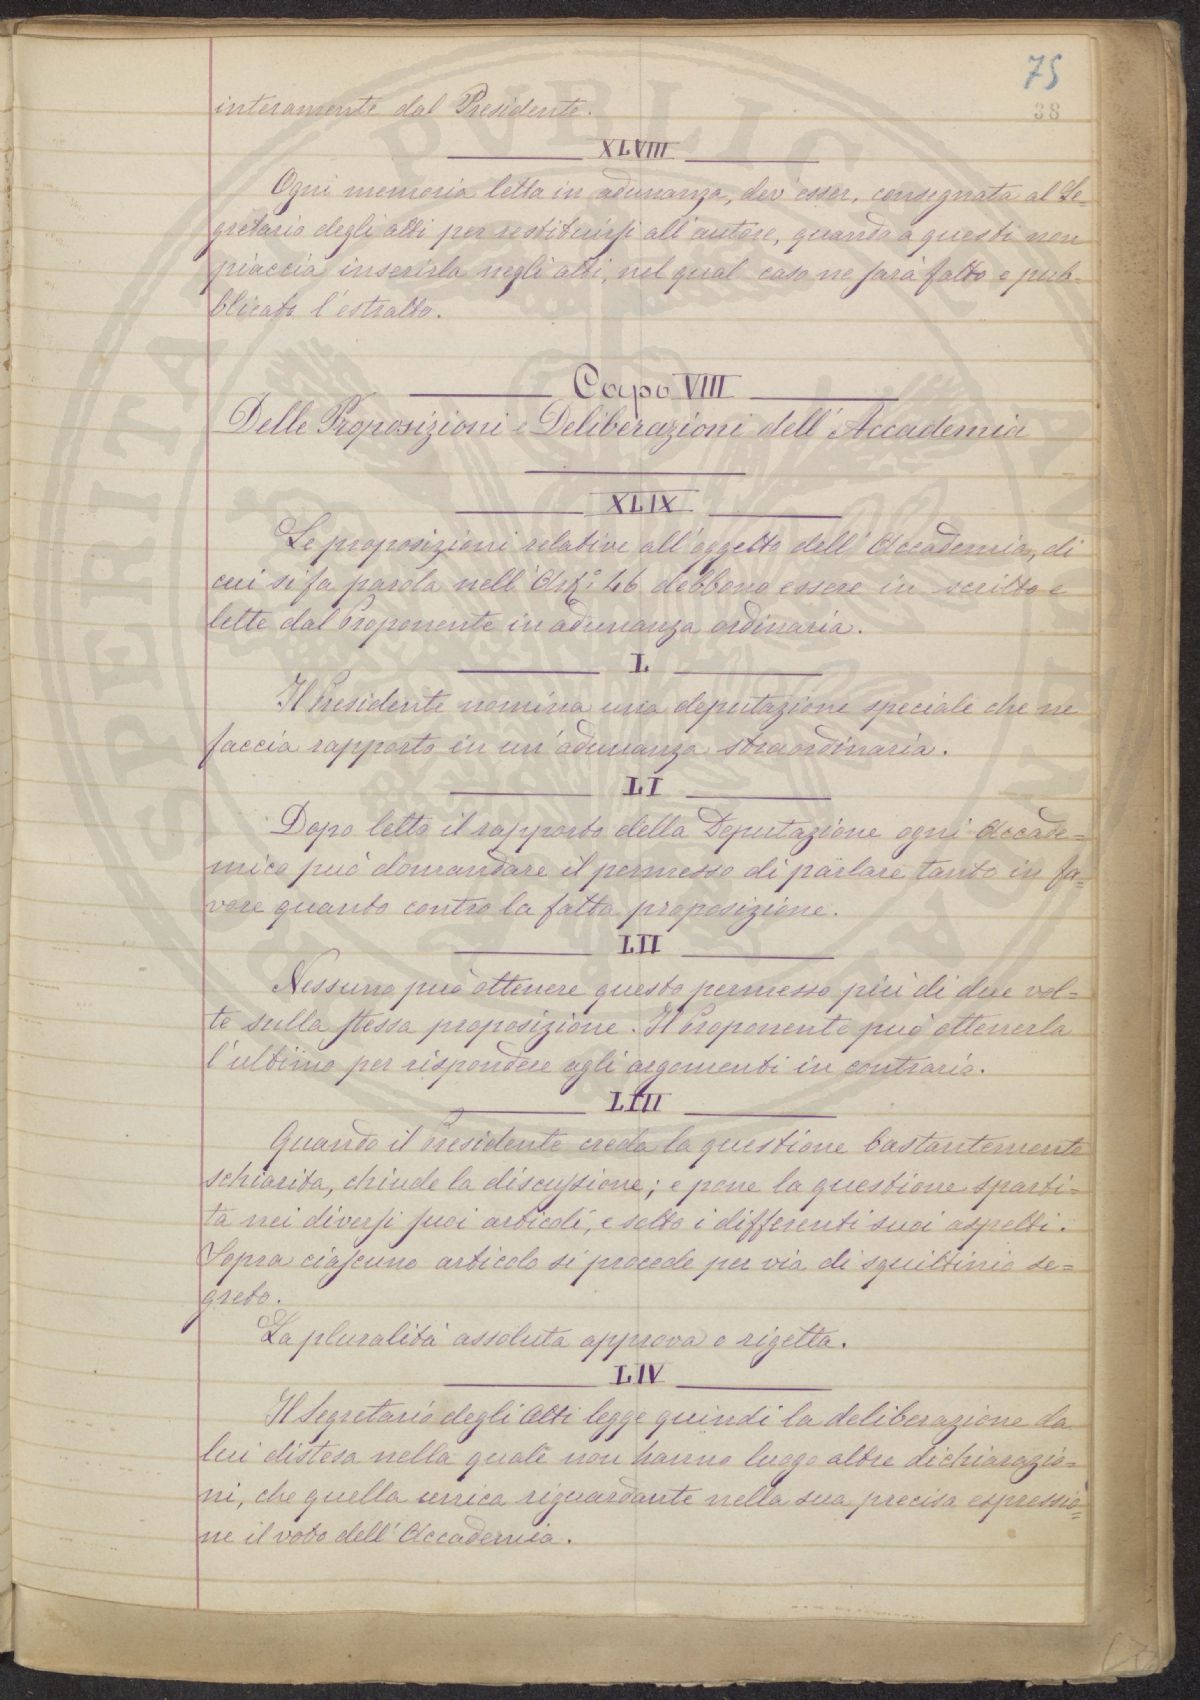 75
38
interamente dal Presidente.
XLVIII
Ogni memoria letta in adunanza, dev'esser, consegnata al Se-
gretario degli atti per restituirsi all'autore, quando a questi non
piaccia inserirla negli atti, nel qual caso ne sarà fatto e pub-
blicato l'estratto.
Capo VIII
Delle Proposizioni e Deliberazioni dell'Accademia
XLIX
Le proposizioni relative all'oggetto dell'Accademia, di
cui si fa parola nell'Art.° 46 debbono essere in scritto e
lette dal Proponente in adunanza ordinaria.
L
Il Presidente nomina una deputazione speciale che ne
faccia rapporto in un'adunanza straordinaria.
LI
Dopo letto il rapporto della Deputazione ogni Accade=
mico può domandare il permesso di parlare tanto in fa=
vore quanto contro la fatta proposizione.
LII
Nessuno può ottenere questo permesso più di due vol=
te sulla stessa proposizione. Il Proponente può ottenerla
l'ultimo per rispondere agli argomenti in contrario.
LIII
Quando il Presidente creda la questione bastantemente
schiarita, chiude la discussione; e pone la questione sparti=
ta nei diversi suoi articoli, e sotto i differenti suoi aspetti.
Sopra ciascuno articolo si procede per via di squittinio se=
greto.
La pluralità assoluta approva o rigetta.
LIV
Il Segretario degli Atti legge quindi la deliberazione da
lui distesa nella quale non hanno luogo altre dichiarazio=
ni, che quella unica riguardante nella sua precisa espressio=
ne il voto dell'Accademia.